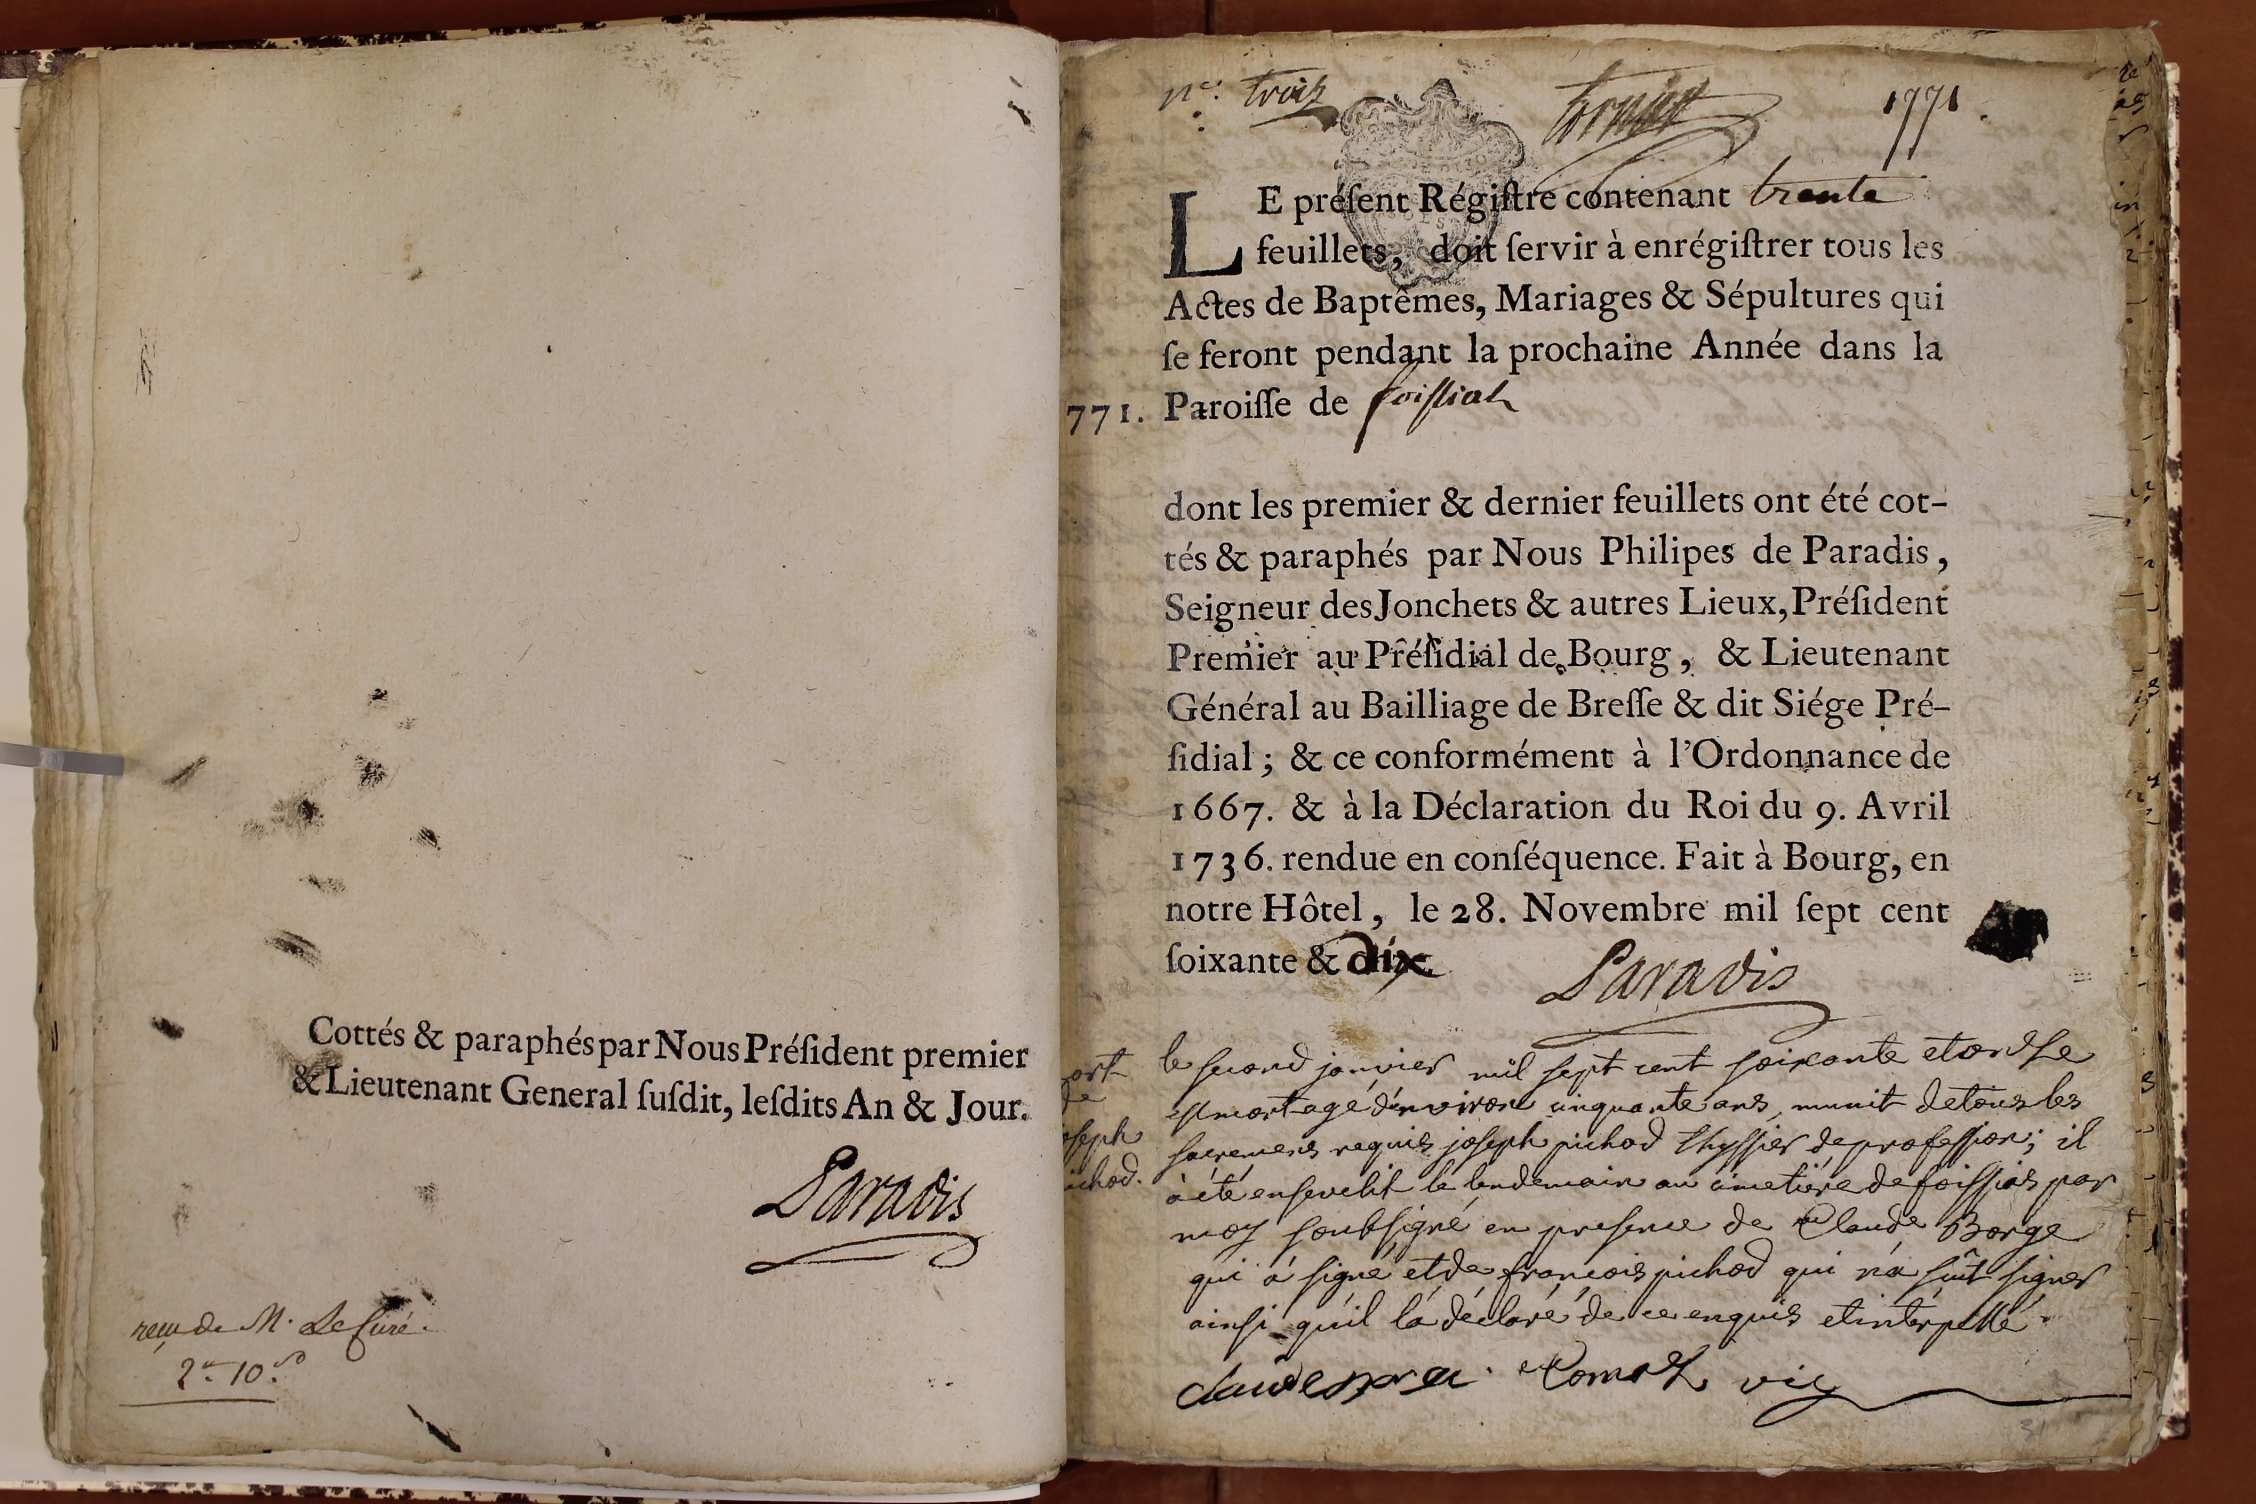 Cottés & paraphés par Nous Préſident premier
& Lieutenant General ſuſdit, leſdits An & Jour.
Paradis
reçu de M. Le Curé.
2 10
nº. trois
1771.
LE préſent Régiſtre contenant trente
feuillets, doit ſervir à enrégiſtrer tous les
Actes de Baptêmes, Mariages & Sépultures qui
ſe feront pendant la prochaine Année dans la
771. Paroiſſe de foissiat
dont les premier & dernier feuillets ont été cot-
tés & paraphés par Nous Philipes de Paradis,
Seigneur des Jonchets & autres Lieux, Préſident
Premier au Préſidial de Bourg, & Lieutenant
Général au Bailliage de Breſſe & dit Siége Pré-
ſidial ; & ce conformément à l'Ordonnance de
1667. & à la Déclaration du Roi du 9. Avril
1736. rendue en conſéquence. Fait à Bourg, en
notre Hôtel, le 28. Novembre mil ſept cent
ſoixante & dix
Paradis
ort
de
oseph
ichod.
le second janvier mil sept cent soixante et onse
est mort agé d'environ cinquante ans, munit de tous les
sacremens requis joseph pichod thyssier de profession; il
à été ensevelit le lendemain au cimetière de foissias par
moy soubsigné en presence de Claude Borge
qui a signé et de françois pichod qui n'a sût signer
ainsi qu'il la déclaré de ce enquis et interpellé
vic